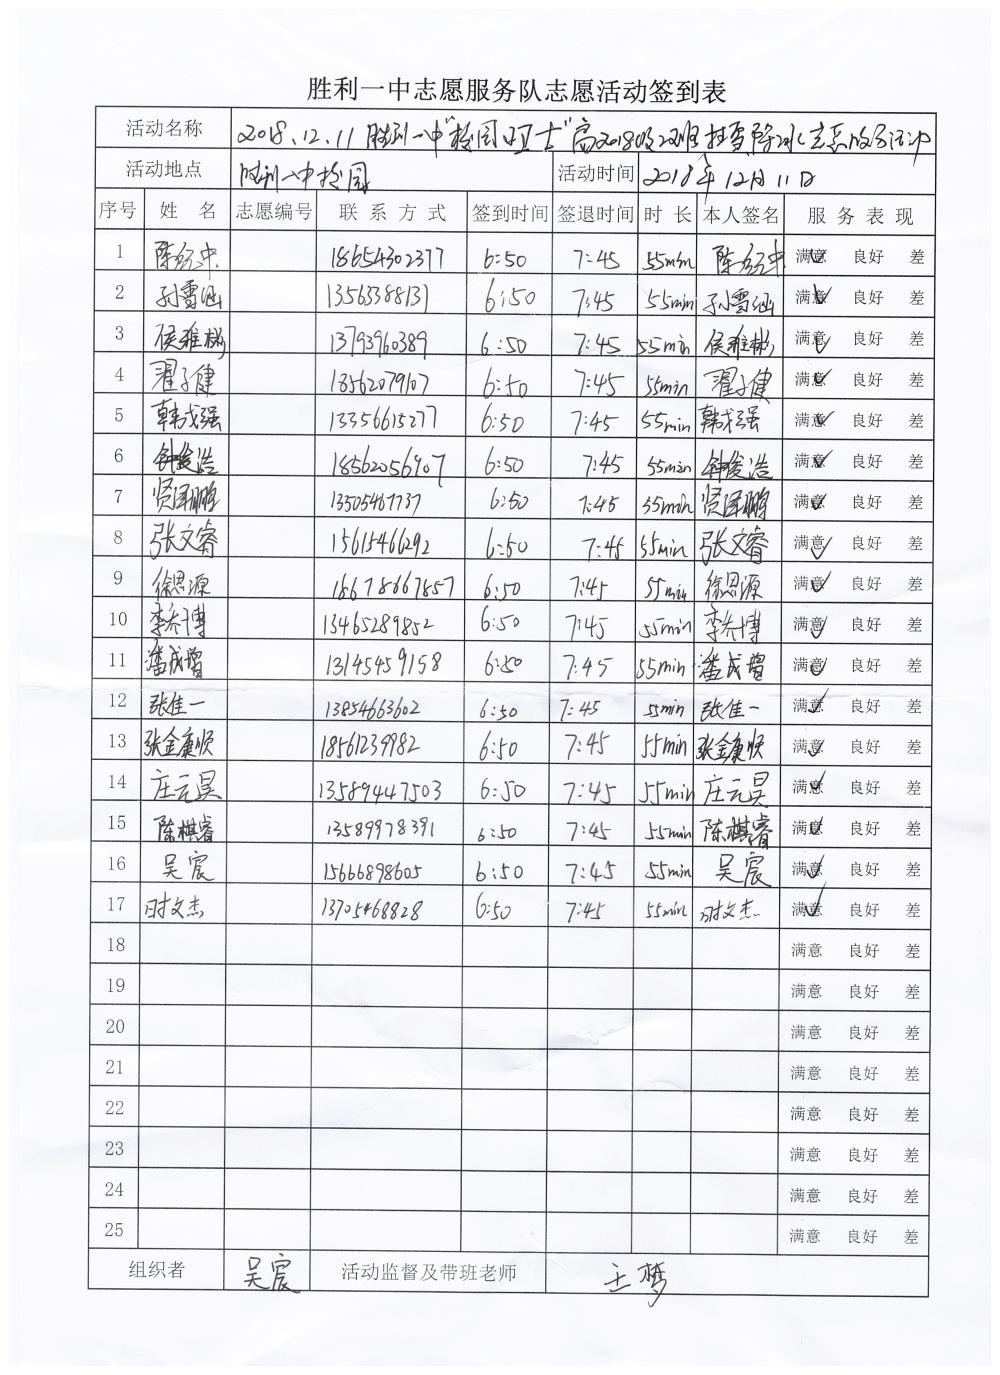 胜利一中志愿服务队志愿活动签到表
活动名称 2018.12.11 胜利一中"校园卫士"高2018级 班扫雪除冰志愿服务活动
活动地点 胜利一中校园 活动时间 2018年12月11日
序号 姓 名 志愿编号 联 系 方 式 签到时间 签退时间 时 长 本人签名 服 务 表 现
1 18654302377 6:50 7:45 55min 满意 良好 差
2 孙雪涵 13563388131 6:50 7:45 55min 孙雪涵 满意 良好 差
3 侯雅彬 13793960389 6:50 7:45 55min 侯雅彬 满意 良好 差
4 翟子健 18562079107 6:50 7:45 55min 翟子健 满意 良好 差
5 韩成强 13356615277 6:50 7:45 55min 韩成强 满意 良好 差
6 钟俊浩 18562056907 6:50 7:45 55min 钟俊浩 满意 良好 差
7 贤泽鹏 13505467737 6:50 7:45 55min 贤泽鹏 满意 良好 差
8 张文睿 15615466292 6:50 7:45 55min 张文睿 满意 良好 差
9 徐思源 18678667857 6:50 7:45 55min 徐思源 满意 良好 差
10 13465289852 6:50 7:45 55min 满意 良好 差
11 潘成增 13145459158 6:50 7:45 55min 潘成增 满意 良好 差
12 张佳一 13854663602 6:50 7:45 55min 张佳一 满意 良好 差
13 张金康顺 18561239982 6:50 7:45 55min 张金康顺 满意 良好 差
14 庄元昊 13589447503 6:50 7:45 55min 庄元昊 满意 良好 差
15 陈棋睿 13589978391 6:50 7:45 55min 陈棋睿 满意 良好 差
16 吴宸 15666898605 6:50 7:45 55min 吴宸 满意 良好 差
17 时文杰 13705468828 6:50 7:45 55min 时文杰 满意 良好 差
18 满意 良好 差
19 满意 良好 差
20 满意 良好 差
21 满意 良好 差
22 满意 良好 差
23 满意 良好 差
24 满意 良好 差
25 满意 良好 差
组织者 吴宸 活动监督及带班老师 王梦